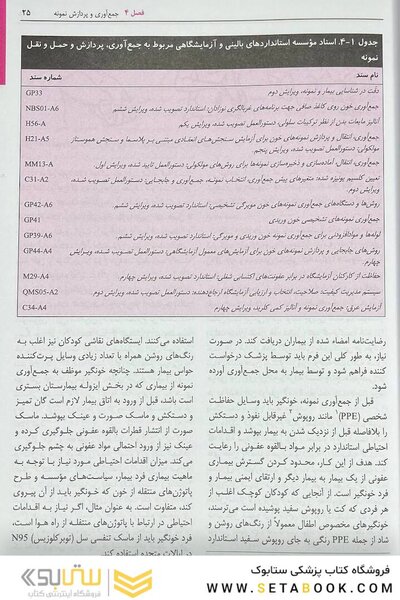 فصل ۴ جمع‌آوری و پردازش نمونه ۲۵
جدول ۱-۴. اسناد مؤسسه استانداردهای بالینی و آزمایشگاهی مربوط به جمع‌آوری، پردازش و حمل و نقل
نمونه
نام سند شماره سند
دقت در شناسایی بیمار و نمونه، ویرایش دوم GP33
جمع‌آوری خون روی کاغذ صافی جهت برنامه‌های غربالگری نوزادان: استاندارد تصویب شده، ویرایش ششم NBS01-A6
آنالیز مایعات بدن از نظر ترکیبات سلولی، دستورالعمل تصویب شده، ویرایش یکم H56-A
جمع‌آوری، انتقال و پردازش نمونه‌های خون برای آزمایش سنجش‌های انعقادی مبتنی بر پلاسما و سنجش هموستاز H21-A5
مولکولی: دستورالعمل تصویب شده، ویرایش پنجم
جمع‌آوری، انتقال، آماده‌سازی و ذخیره‌سازی نمونه‌ها برای روش‌های مولکولی: دستورالعمل تایید شده، ویرایش اول MM13-A
تعیین کلسیم یونیزه شده: متغیرهای پیش جمع‌آوری، انتخاب نمونه، جمع‌آوری و جابجایی: دستورالعمل تصویب شده، C31-A2
ویرایش دوم
روش‌ها و دستگاه‌های جمع‌آوری نمونه‌های خون مویرگی تشخیصی: استاندارد تصویب شده، ویرایش ششم GP42-A6
جمع‌آوری نمونه‌های تشخیصی خون وریدی GP41
لوله‌ها و موادافزودنی برای جمع‌آوری نمونه خون وریدی و مویرگی: استاندارد تصویب شده، ویرایش ششم GP39-A6
روش‌های جابجایی و پردازش نمونه‌های خون برای آزمایش‌های معمول آزمایشگاهی: دستورالعمل تصویب شده، ویرایش GP44-A4
چهارم
حفاظت از کارکنان آزمایشگاه در برابر عفونت‌های اکتسابی شغلی: استاندارد تصویب شده، ویرایش چهارم M29-A4
سیستم مدیریت کیفیت: صلاحیت، انتخاب و ارزیابی آزمایشگاه ارجاع‌دهنده: دستورالعمل تصویب شده، ویرایش دوم QMS05-A2
آزمایش عرق: جمع‌آوری نمونه و آنالیز کمی کلرید، ویرایش چهارم C34-A4
رضایت‌نامه امضاء شده از بیماران دریافت کند. در صورت
نیاز، به طور کلی این فرم باید توسط پزشک درخواست
کننده فراهم شود و توسط بیمار به محل جمع‌آوری آورده
شود.
قبل از جمع‌آوری نمونه، خونگیر باید وسایل حفاظت
شخصی (PPE) مانند روپوش غیرقابل نفوذ و دستکش
را بلافاصله قبل از نزدیک شدن به بیمار بپوشد و اقدامات
احتیاطی استاندارد در برابر مواد بالقوه عفونی را رعایت
کند. هدف از این کار، محدود کردن گسترش بیماری
عفونی از یک بیمار به بیمار دیگر و ارتقای ایمنی بیمار و
فرد خونگیر است. از آنجایی که کودکان کوچک اغلب از
هر فردی که کت یا روپوش سفید پوشیده است می‌ترسند،
خونگیرهای مخصوص اطفال معمولاً از رنگ‌های روشن و
شاد از جمله PPE رنگی به جای روپوش سفید استاندارد
استفاده می‌کنند. ایستگاه‌های نقاشی کودکان نیز اغلب به
رنگ‌های روشن همراه با تعداد زیادی وسایل پرت‌کننده
حواس بیمار هستند. چنانچه خونگیر موظف به جمع‌آوری
نمونه از بیماری که در بخش ایزوله بیمارستان بستری
است باشد، قبل از ورود به اتاق بیمار لازم است گان تمیز
و دستکش و ماسک صورت و عینک بپوشد. ماسک
صورت از انتشار قطرات بالقوه عفونی جلوگیری کرده و
عینک نیز از ورود احتمالی مواد عفونی به چشم جلوگیری
می‌کند. میزان اقدامات احتیاطی مورد نیاز با توجه به
ماهیت بیماری فرد بیمار، سیاست‌های مؤسسه و طرح
پاتوژن‌های منتقله از خون که خونگیر باید از آن پیروی
کند، متفاوت است. به عنوان مثال، اگر نیاز به اقدامات
احتیاطی در ارتباط با پاتوژن‌های منتقله از راه هوا است،
فرد خونگیر باید از ماسک تنفسی سل (توبرکلوزیس) N95
در ایالات متحده استفاده کند.
فروشگاه کتاب پزشکی ستابوک
WWW.SETABOOK.COM
ستابوک
فروشگاه اینترنتی کتاب